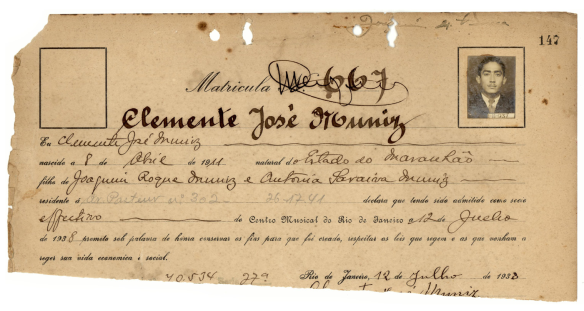 147
Matricula 667
Clemente José Muniz
Eu Clemente José Muniz
nascido a 8 de Abril de 1911 natural do Estado do Maranhão
filho de Joaquim Roque Muniz e Antonia Saraiva Muniz
residente á nº 302 26-17-41 declara que tendo sido admittido como socio
effectivo do Centro Musical do Rio de Janeiro a 12 de Julho
de 1938 prometto sob palavra de honra conservar os fins para que foi creado, respeitar as leis que regem e as que venham a
reger sua vida economica e social.
40534 279 Rio de Janeiro, 12 de Julho de 1938
Muniz